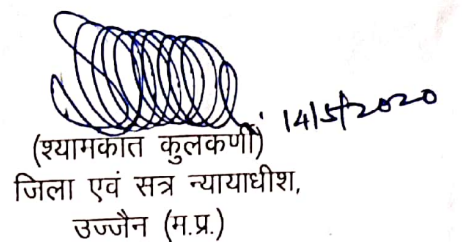 14/5/2020
(श्यामकांत कुलकर्णी)
जिला एवं सत्र न्यायाधीश,
उज्जैन (म.प्र.)